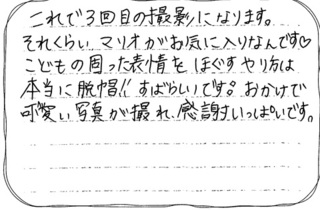 これで3回目の撮影になります。
それくらい、マリオがお気に入りなんです♡
こどもの固った表情を ほぐすやり方は
本当に脱帽!! すばらしいです。おかげで
可愛い写真が撮れ、感謝いっぱいです。